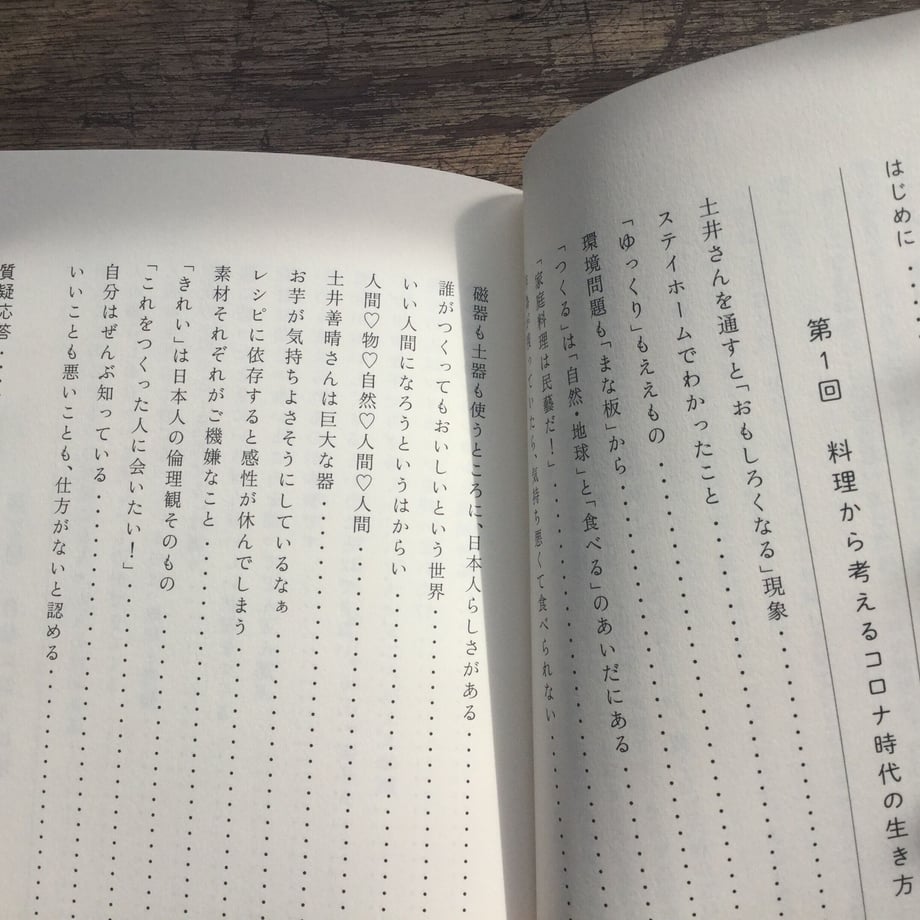 はじめに・・・・
第1回　料理から考えるコロナ時代の生き方
土井さんを通すと「おもしろくなる」現象・・・・・・・・・・・・
ステイホームでわかったこと・・・・・・・・・・・・・・・
「ゆっくり」もええもの・・・・・・・・・・・・・・・・・
環境問題も「まな板」から・・・・・・・・・・・・・・・・・
「つくる」は「自然・地球」と「食べる」のあいだにある・・・・・・・
「家庭料理は民藝だ!」・・・・・・・・・・・・・
たら、気持ち悪くて食べられない・・・・
磁器も土器も使うところに、日本人らしさがある・・・・・・・・
誰がつくってもおいしいという世界・・・・・・・・・・・・・
いい人間になろうというはからい・・・・・・・・・・・・・・
人間♡物♡自然♡人間♡人間・・・・・・・・・・・・・・・
土井善晴さんは巨大な器・・・・・・・・・・・・・・・・・
お芋が気持ちよさそうにしているなぁ・・・・・・・・・・・・
レシピに依存すると感性が休んでしまう・・・・・・・・・・・
素材それぞれがご機嫌なこと・・・・・・・・・・・・・・・
「きれい」は日本人の倫理観そのもの・・・・・・・・・・・・
「これをつくった人に会いたい!」・・・・・・・・・・・・・・
自分はぜんぶ知っている・・・・・・・・・・・・・・・・・
いいことも悪いことも、仕方がないと認める・・・・・・・・・・
質疑応答・・・・